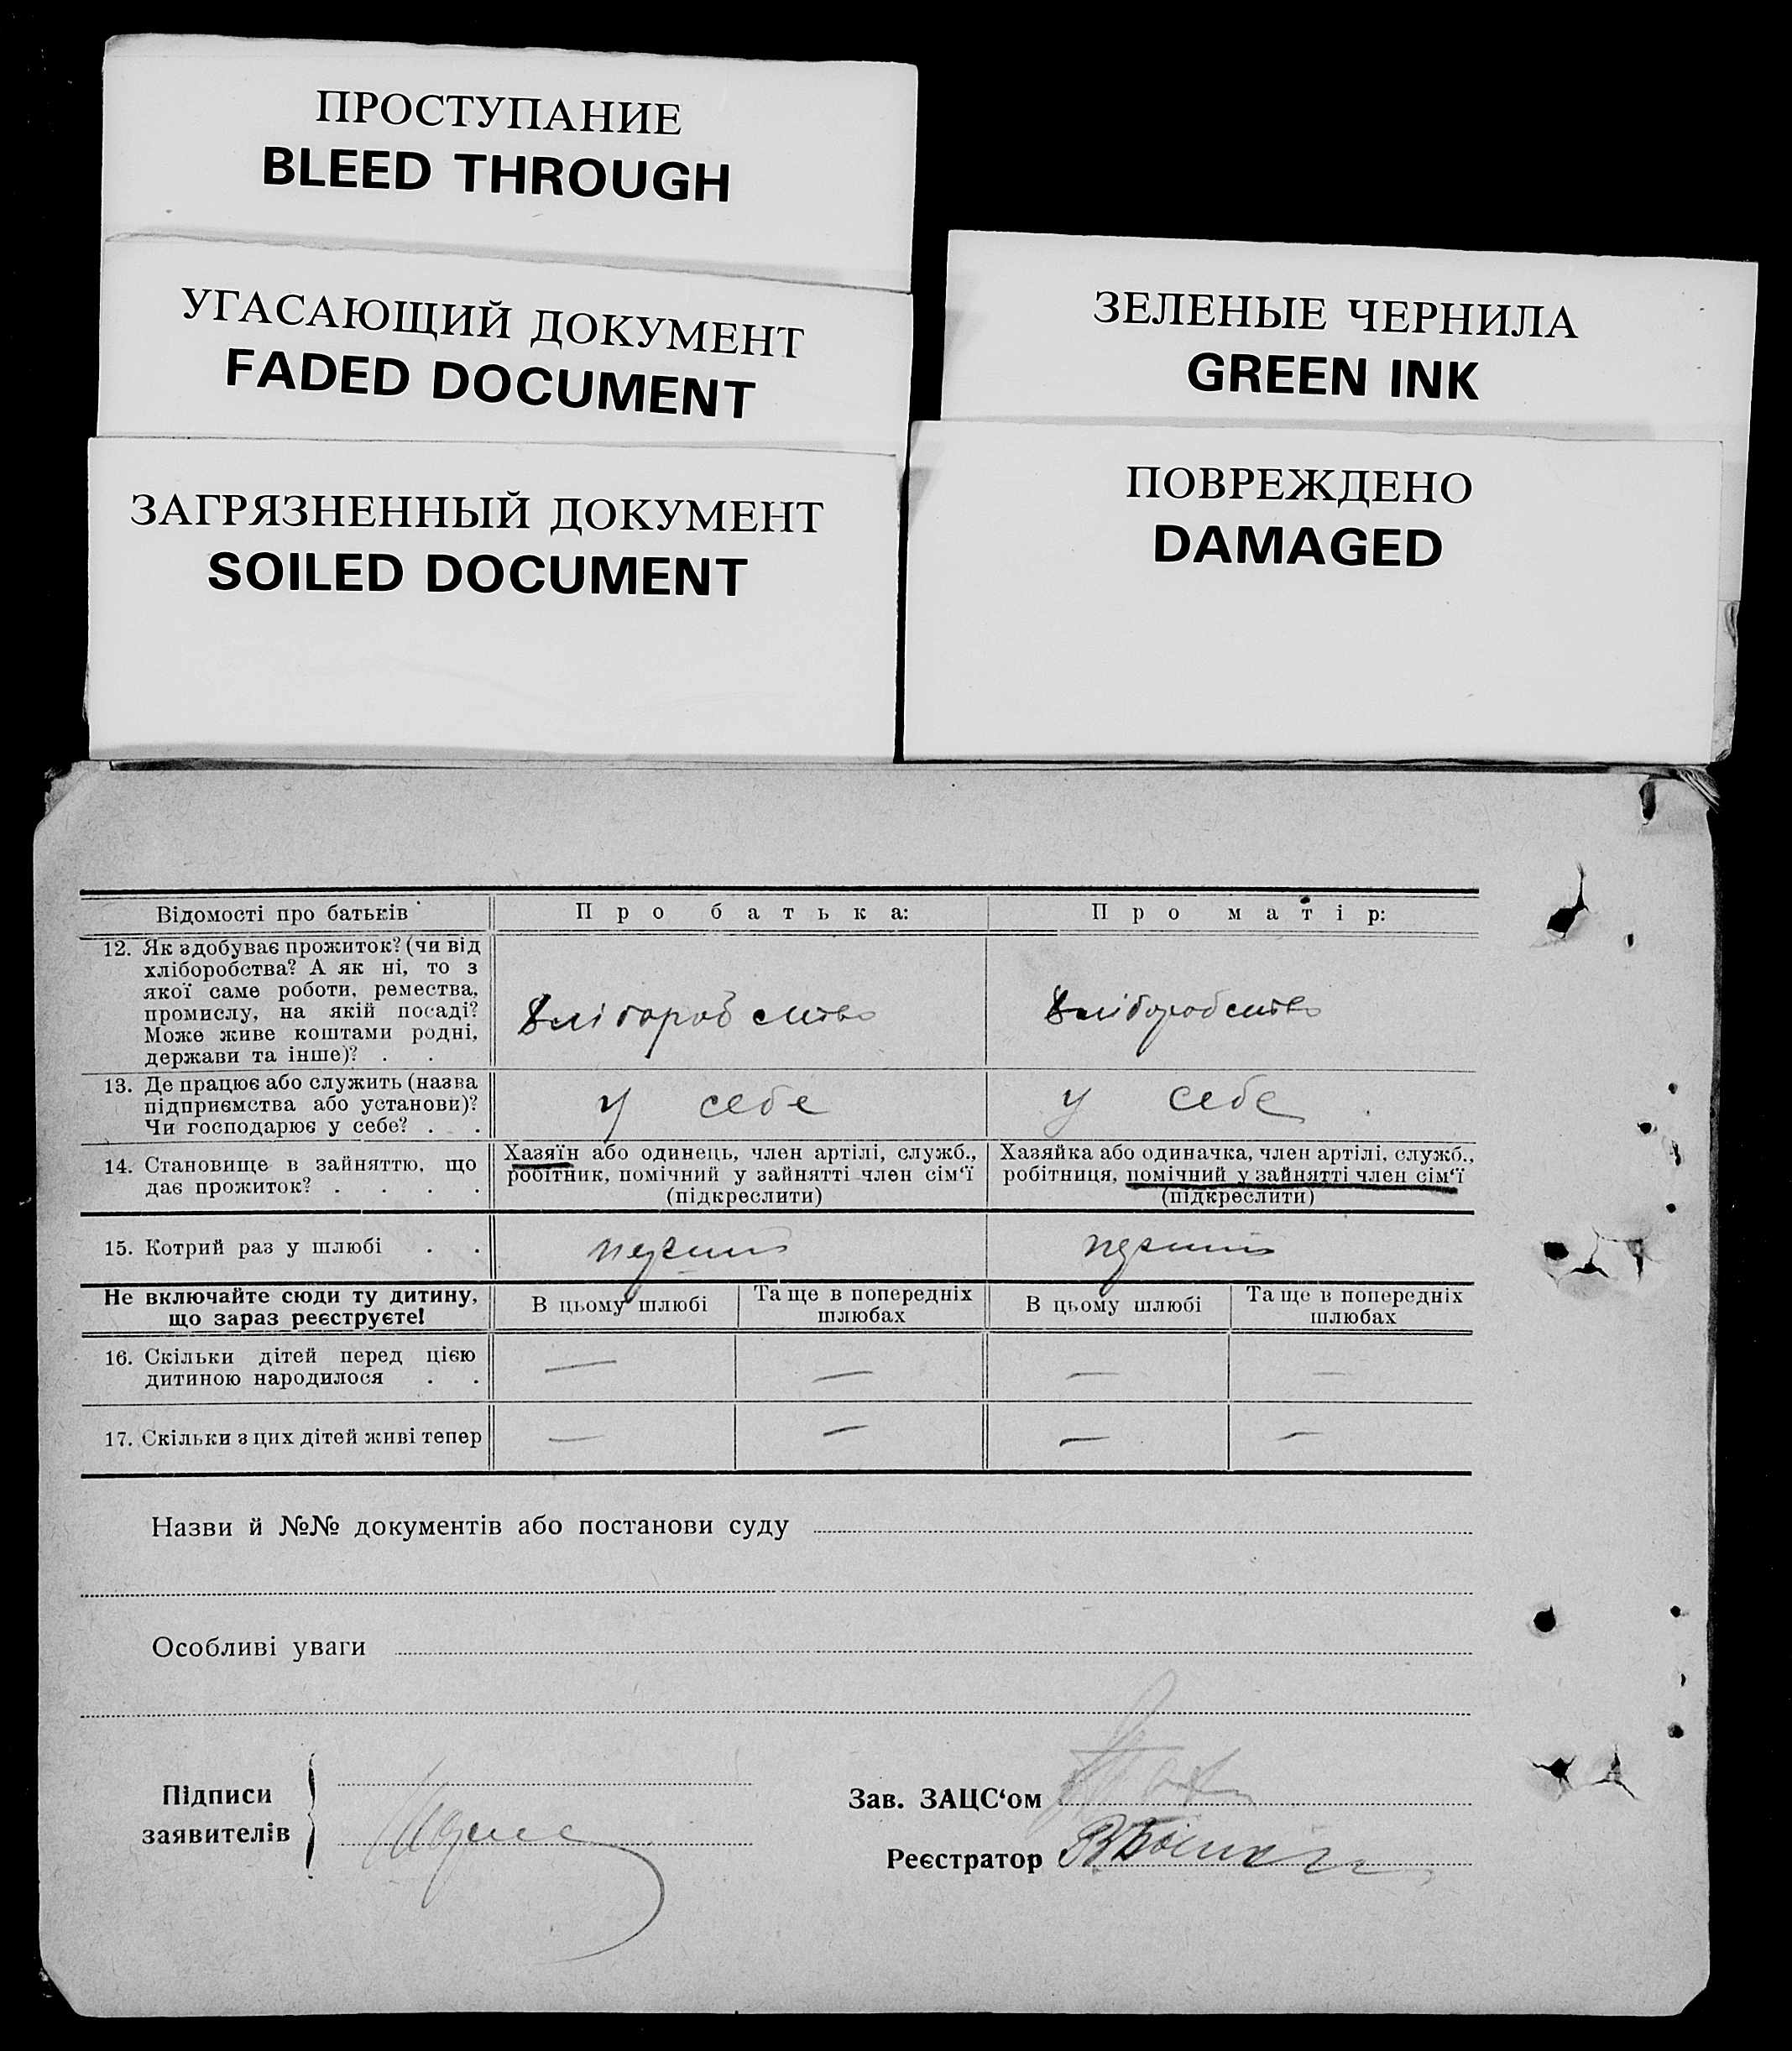 ПРОСТУПАНИЕ
BLEED THROUGH
УГАСАЮЩИЙ ДОКУМЕНТ
FADED DOCUMENT
ЗАГРЯЗНЕННЫЙ ДОКУМЕНТ
SOILED DOCUMENT
ЗЕЛЕНЫЕ ЧЕРНИЛА
GREEN INK
ПОВРЕЖДЕНО
DAMAGED
Відомості про батьків
Про батька:
Про матір:
12. Як здобуває прожиток? (чи від
хліборобства? А як ні, то з
якої саме роботи, ремества,
промислу, на якій посаді?
Може живе коштами родні,
держави та інше)? . .
Хліборобство
Хліборобство
13. Де працює або служить (назва
підприємства або установи)?
Чи господарює у себе? . .
у себе
у себе
14. Становище в зайняттю, що
дає прожиток? . . . .
Хазяїн або одинець, член артілі, служб.,
робітник, помічний у зайнятті член сім‘ї
(підкреслити)
Хазяйка або одиначка, член артілі, служб.,
робітниця, помічний у зайнятті член сім‘ї
(підкреслити)
15. Котрий раз у шлюбі . .
перший
перший
Не включайте сюди ту дитину,
що зараз реєструєте!
В цьому шлюбі
Та ще в попередніх
шлюбах
В цьому шлюбі
Та ще в попередніх
шлюбах
16. Скільки дітей перед цією
дитиною народилося . .
— — — —
17. Скільки з цих дітей живі тепер
— — — —
Назви й №№ документів або постанови суду
Особливі уваги
Підписи
заявителів
Зав. ЗАЦС‘ом
Реєстратор